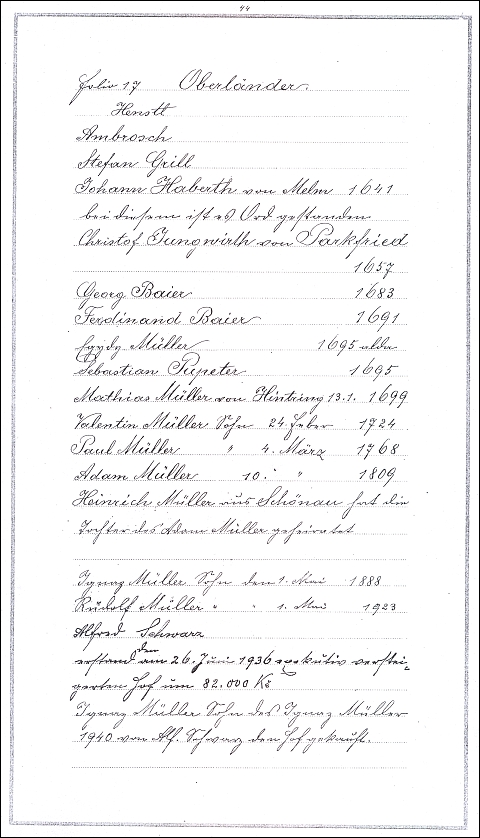 44
Folio 17 Oberländer.
Henstl
Ambrosch
Stefan Grill
Johann Haberth von Melm 1641
bei diesem ist es Öd gestanden
Christof Jungwirth von Parkfried
1657
Georg Baier 1683
Ferdinand Baier 1691
Egydy Müller 1695 alda
Sebastian Pupeter 1695
Mathias Müller von Hintring 13.1. 1699
Valentin Müller Sohn 24. Feber 1724
Paul Müller " 4. März 1768
Adam Müller 10. " 1809
Heinrich Müller aus Schönau hat die
Tochter des Adam Müller geheiratet
Ignaz Müller Sohn den 1. Mai 1888
Rudolf Müller " " 1. Mai 1923
Alfred Schwarz
erstand den am 26. Juni 1936 exekutiv verstei=
gerten Hof um 82.000 Kč
Ignaz Müller Sohn des Ignaz Müller
1940 von Alf. Schwarz den Hof gekauft.